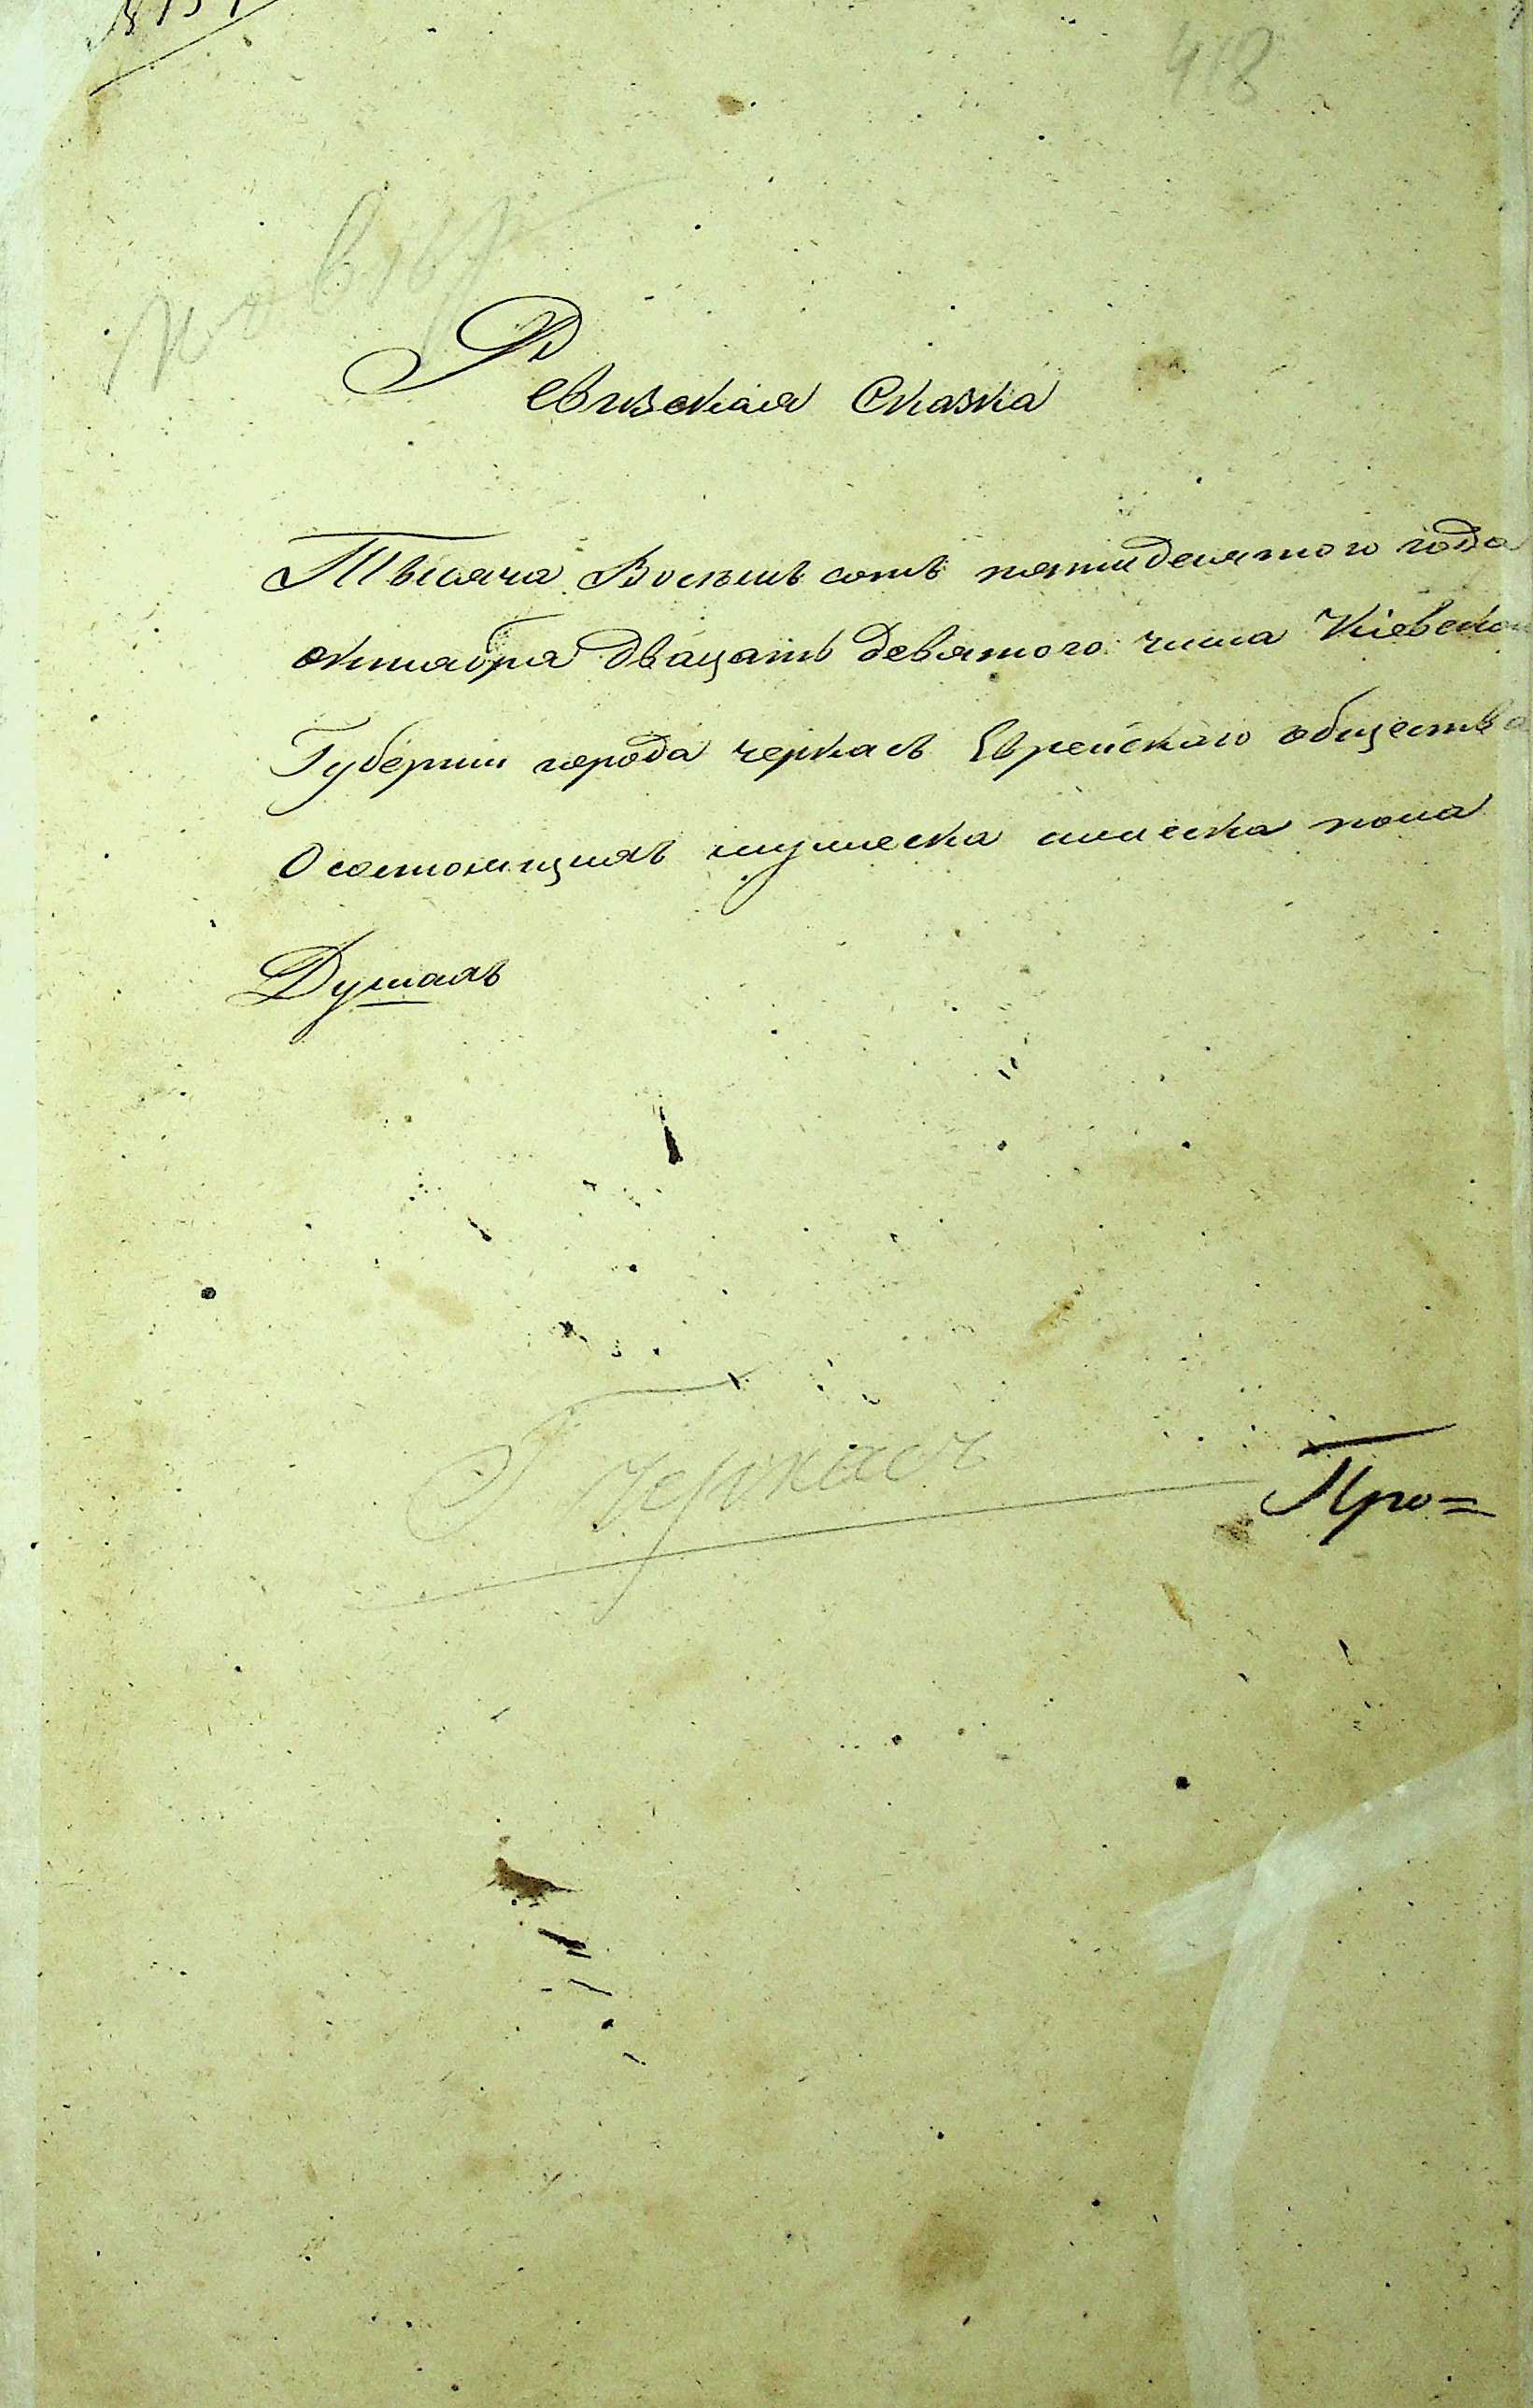 418
Ревизская Сказка
Тысяча Восемь сотъ пятидесятого года
октиабра двацать девятого числа Кіевской
Губернии города черкасъ Еврейского общества
О состоящихъ мужеска женска пола
Душахъ
Г Черкасъ
Про=